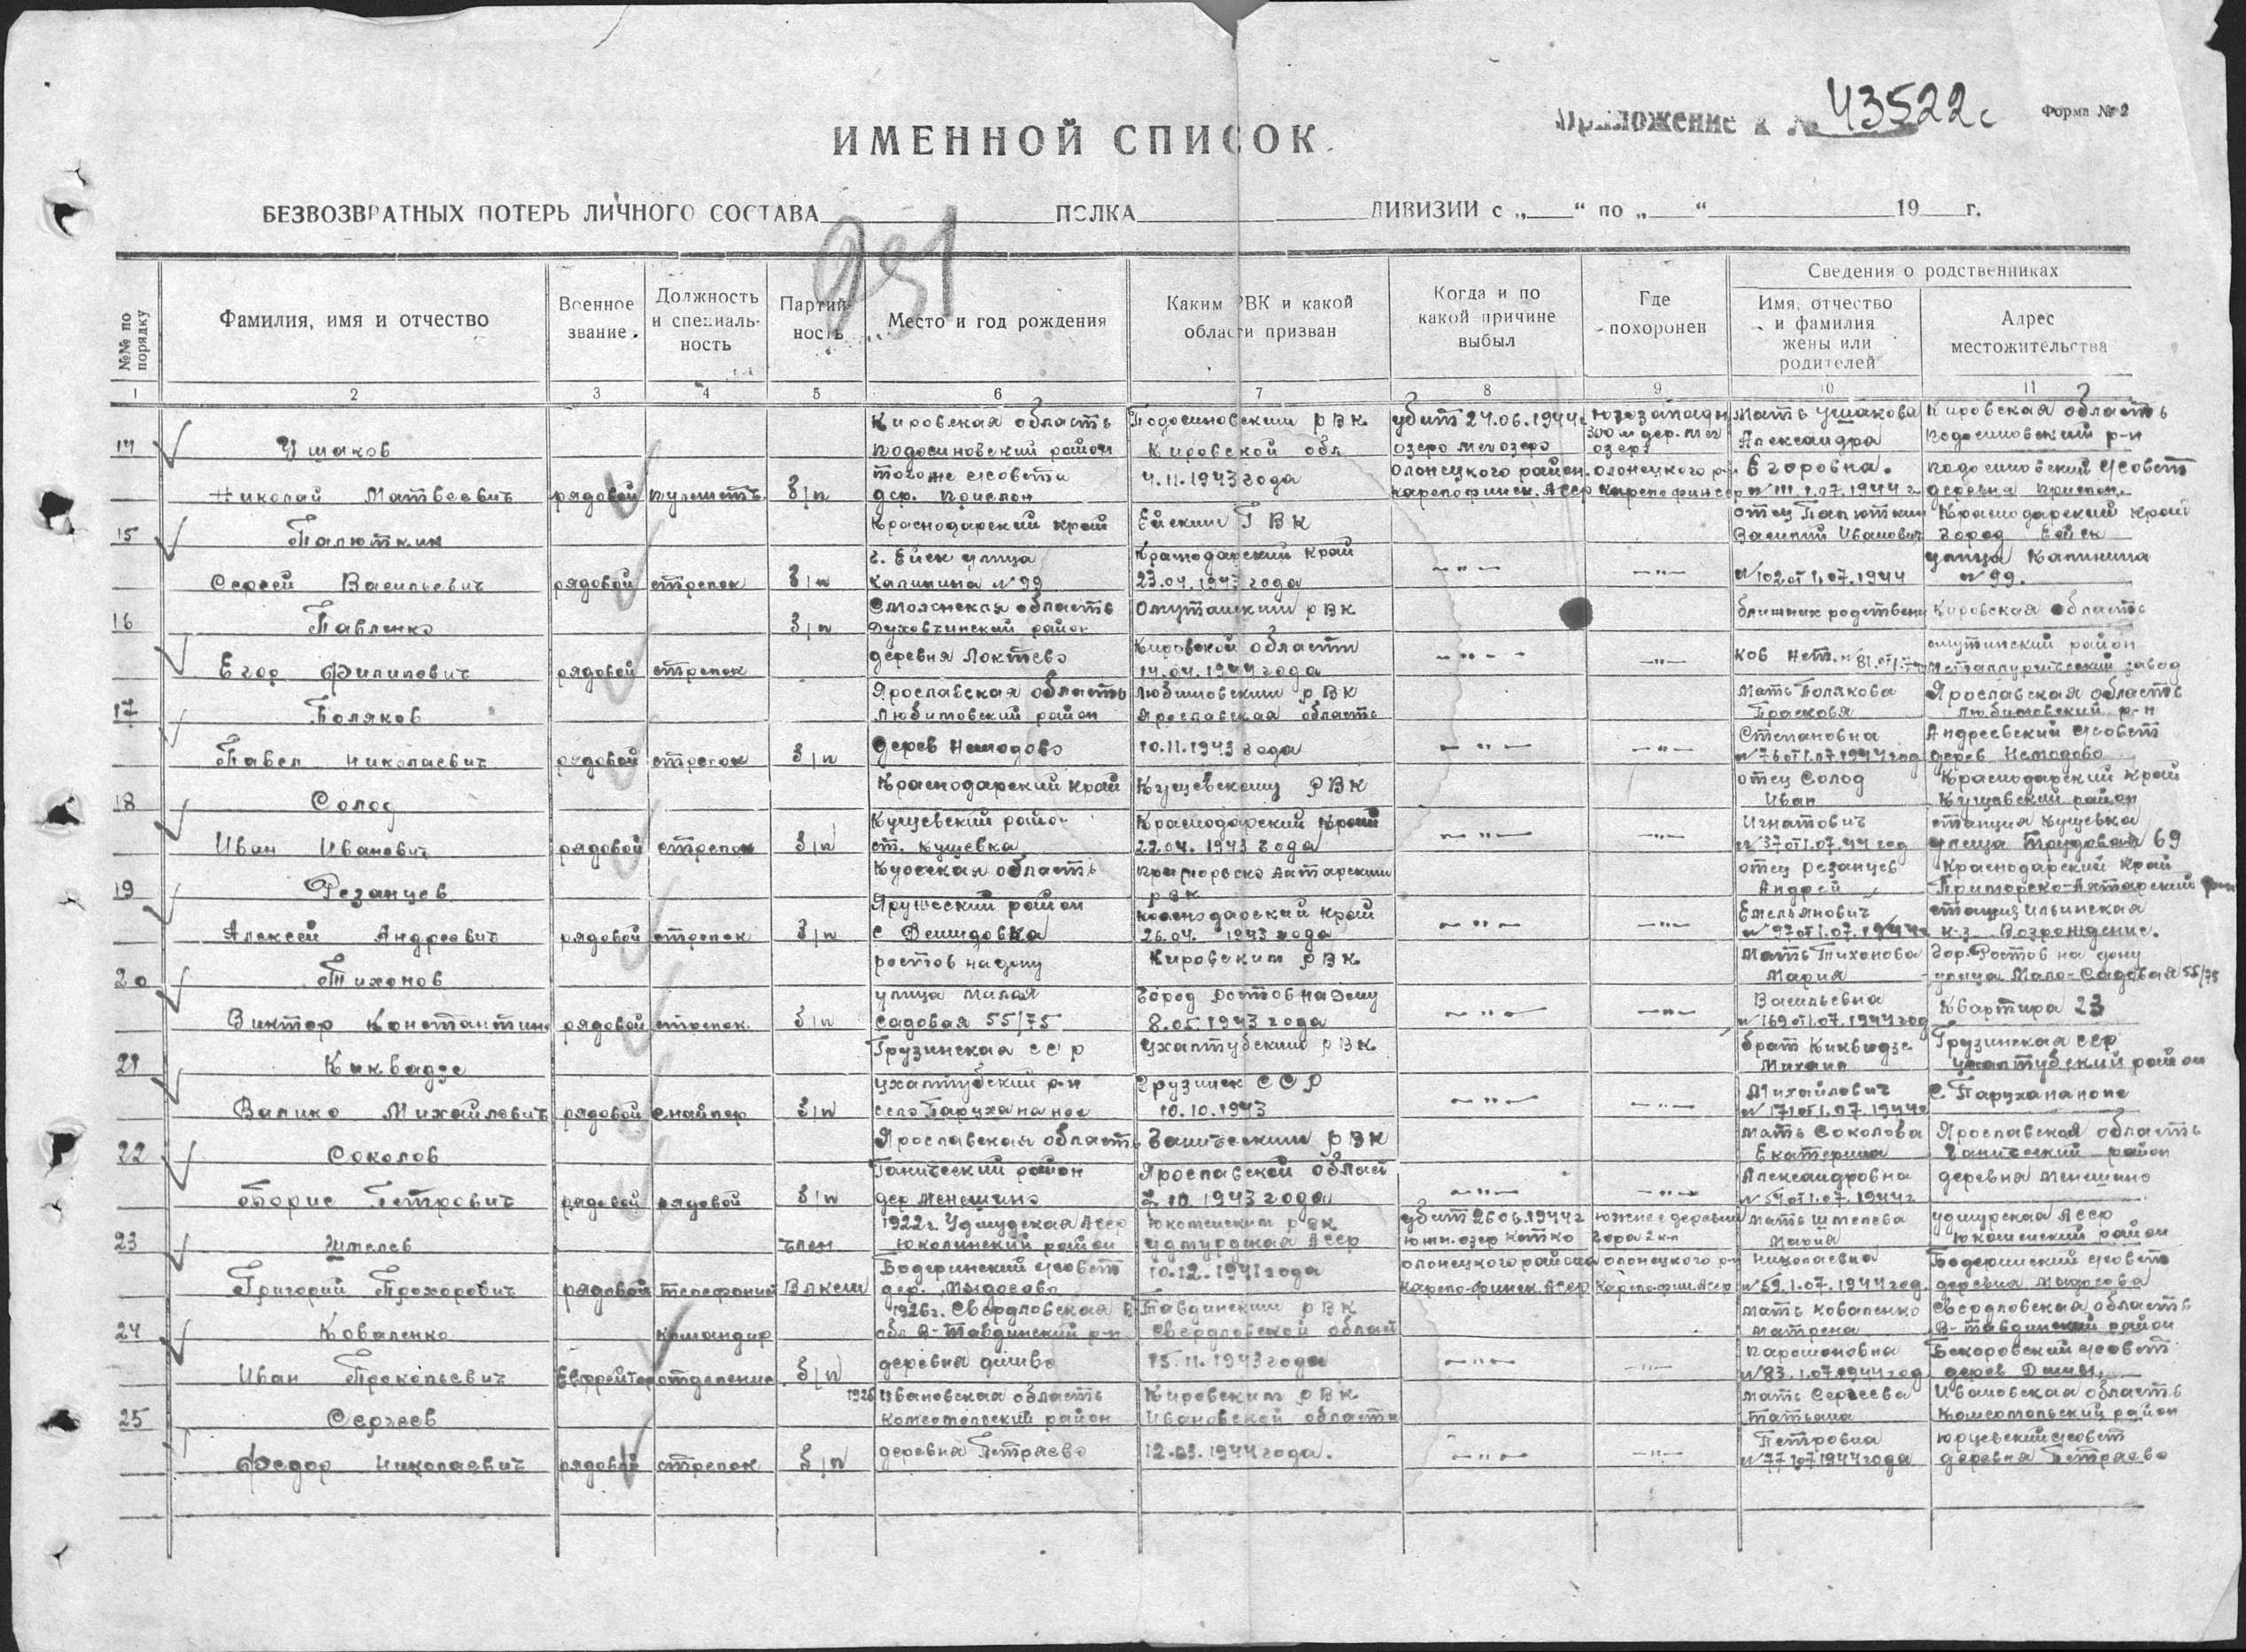 Приложение к № 43522с
Форма № 2
ИМЕННОЙ СПИСОК
БЕЗВОЗВРАТНЫХ ПОТЕРЬ ЛИЧНОГО СОСТАВА ПОЛКА ДИВИЗИИ с „ “ по „ “ 19 г.
951
№№ по порядку
Фамилия, имя и отчество
Военное звание
Должность и специальность
Партийность
Место и год рождения
Каким РВК и какой области призван
Когда и по какой причине выбыл
Где похоронен
Сведения о родственниках
Имя, отчество и фамилия жены или родителей
Адрес местожительства
1 2 3 4 5 6 7 8 9 10 11
Кировская область Подосиновским РВК убит 24.06.1944г югозападн мать Ушакова Кировская область
14 Ушаков подосиновский район Кировской обл озеро мегозеро 300 м дер. Мег озеро Александра подосиновский р-н
тоже с/совета 4.11.1943 года олонецкого район. олонецкого р-н Егоровна. подосиновский с/совет
Николай Матвеевич рядовой пулеметч. б/п дер. Прислон карело финск. АССР карело финссср №111 1.07.1944 г деревня Прислон.
Краснодарский край Ейским ГВК отец Палюткин Краснодарский край
15 Палюткин Василий Иванович город Ейск
г. Ейск улица Краснодарский край —"— —"— улица Калинина
Сергей Васильевич рядовой стрелок б/п Калинина №99 23.04.1943 года №102 от 1.07.1944 №99.
Смоленская область Омутнинским РВК ближних родствени Кировская область
16 Павленко б/п Духовчинский район
омутнинский район
Егор Филипович рядовой стрелок деревня Локтево Кировской области 14.04.1944 года —"— —"— ков нет. №81 металлургический завод
Ярославская область Любимовским РВК мать Полякова Ярославская область
17 Поляков Любимовский район Ярославская область Прасковя Любимовский р-н
Степановна Андреевский с/совет
Павел Николаевич рядовой стрелок б/п дерев Немодово 10.11.1943 года —"— —"— №76 от 1.07.1944 год дерев Немодово
Краснодарский край Кущевскому РВК отец Солод Краснодарский край
18 Солод Иван Кущевский район
Кущевский район Краснодарский край Игнатович станция Кущевка
Иван Иванович рядовой стрелок б/п ст. Кущевка 22.04.1943 года —"— —"— №37 от 1.07.44 год улица Трудовая 69
Курская область Приморско Ахтарским РВК отец Резанцев Краснодарский край
19 Резанцев Андрей Приморско-Ахтарский р-н
район Краснодарский край Емельянович станция Ильинская
Алексей Андреевич рядовой стрелок б/п с Демидовка 26.04. 1943 года —"— —"— №97 от 1.07.1944г к-з Возрождение.
ростов на дону Кировским РВК мать Тихонова гор. Ростов на дону
20 Тихонов Мария улица Мало-Садовая 55/75
улица малая город Ростов на Дону Васильевна квартира 23
Виктор Константин рядовой стрелок б/п садовая 55/75 8.05.1943 года —"— —"— №169 от 1.07.1944 год
Грузинская ССР Цхалтубским РВК брат Киквидзе Грузинская ССР
21 Киквадзе Михаил Цхалтубский район
Цхалтубский р-н Грузинск ССР Михайлович
Валико Михайлович рядовой снайпер б/п 10.10.1943 —"— —"— №171 от 1.07.1944г
Ярославская область РВК мать Соколова Ярославская область
22 Соколов Екатерина район
район Ярославской област Александровна деревня Менешино
Борис Петрович рядовой рядовой б/п дер Менешино 2.10.1943 года —"— —"— №54 от 1.07.1944г
1922г. Удмудская АССР РВК убит 26.06.1944г южнее деревни мать Шмелева удмурская АССР
23 Шмелев член район Удмурдская АССР южн. озер Котко гора 2 км Мария район
Бодеринский с/совет 10.12.1941 года олонецкого района олонецкого р-н Николаевна Бодеринский с/совет
Григорий Прохорович рядовой телефонист ВЛКСМ дер. карело-финск. АССР карелофин. АССР №59. 1.07.1944 год. деревня
1926г. Свердловская Тавдинским РВК мать Коваленко Свердловская область
24 Коваленко командир обл В-Тавдинский р-н Свердловской област матрена В-тавдинский район
Парамоновна с/совет
Иван Прокопьевич Ефрейтор отделение б/п деревня 15.11.1943 года —"— —"— №83. 1.07.1944 год дерев
1926 Ивановская область Кировским РВК мать Сергеева Ивановская область
25 Сергеев Комсомольский район Ивановской области Татьяна Комсомольский район
Петровна с/совет
Федор Николаевич рядовой стрелок б/п деревня Петряево 12.03.1944 года. —"— —"— №77 1.07.1944 года деревня Петряево